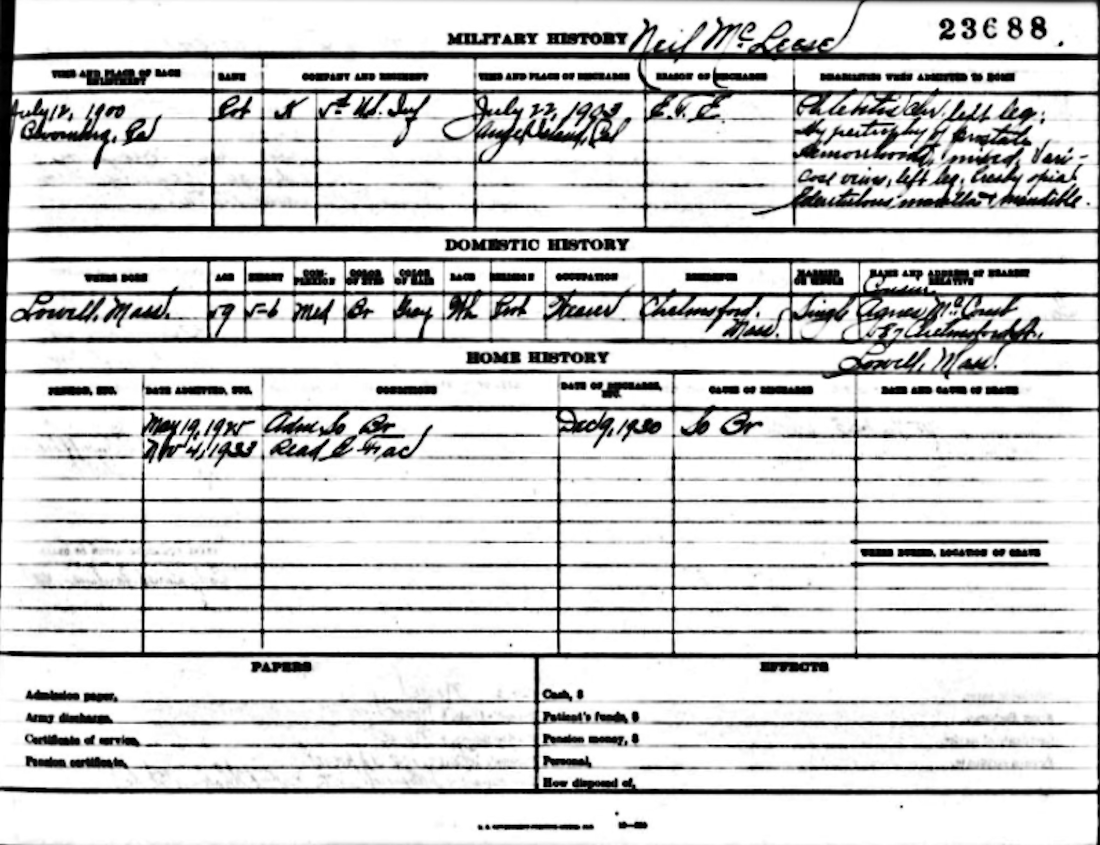 MILITARY HISTORY Neil McLeese 23688
TIME AND PLACE OF EACH ENLISTMENT RANK COMPANY AND REGIMENT TIME AND PLACE OF DISCHARGE REASON OF DISCHARGE DISABILITIES WHEN ADMITTED TO HOME
July 12, 1900 Pvt K 5th U.S. Inf July 22, 1903 E. T. E. Phlebitis chr. left leg;
Pa Angel Island, Cal Hypertrophy of prostate
Hemorrhoids, mixed, Vari-
cose veins, left leg, Presbyopia
Edentulous maxilla & mandible.
DOMESTIC HISTORY
WHERE BORN AGE HEIGHT COMPLEXION COLOR OF EYES COLOR OF HAIR RACE RELIGION OCCUPATION RESIDENCE MARRIED OR SINGLE NAME AND ADDRESS OF NEAREST RELATIVE
Cousin
Lowell, Mass. 59 5-6 Med Br Gray Wh Prot Weaver Chelmsford, Single Agnes
Mass. Chelmsford St.,
Lowell, Mass.
HOME HISTORY
PENSION, ETC. DATE ADMITTED, ETC. CONDITIONS DATE OF DISCHARGE, ETC. CAUSE OF DISCHARGE DATE AND CAUSE OF DEATH
May 19, 1925 Adm So Br Dec 9, 1930 So Br
Nov 4, 1933 Read
WHERE BURIED, LOCATION OF GRAVE
PAPERS EFFECTS
Admission paper, Cash, $
Army discharge. Patient's funds, $
Certificate of service, Pension money, $
Pension certificate, Personal,
How disposed of,
U. S. GOVERNMENT PRINTING OFFICE